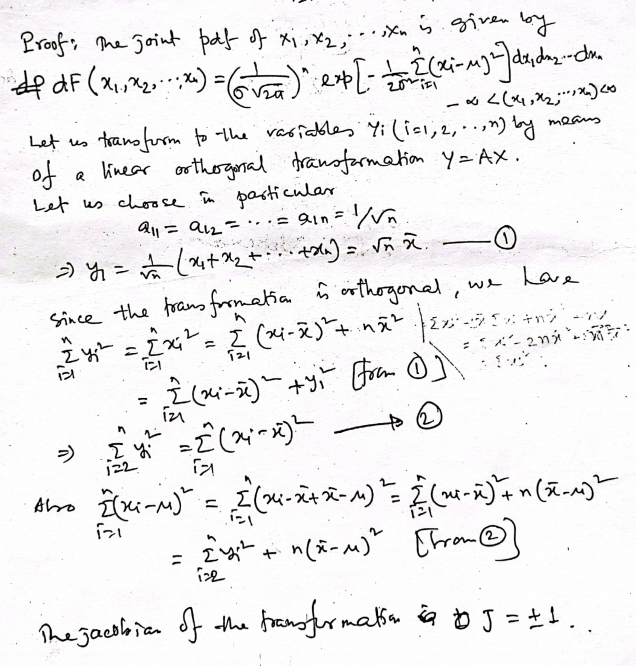 Proof: The joint pdf of x₁, x₂, ..., xₙ is given by
dF(x₁, x₂, ..., xₙ) = (1/(σ√2π))ⁿ exp[-1/(2σ²) Σᵢ₌₁ⁿ (xᵢ-μ)²] dx₁dx₂...dxₙ
-∞ < (x₁, x₂, ..., xₙ) < ∞
Let us transform to the variables Yᵢ (i=1, 2, ..., n) by means
of a linear orthogonal transformation Y = AX.
Let us choose in particular
a₁₁ = a₁₂ = ... = a₁ₙ = 1/√n
⇒ y₁ = 1/√n (x₁+x₂+...+xₙ) = √n x̄. — ①
since the transformation is orthogonal, we have
Σᵢ₌₁ⁿ yᵢ² = Σᵢ₌₁ⁿ xᵢ² = Σᵢ₌₁ⁿ (xᵢ-x̄)² + nx̄²
= Σᵢ₌₁ⁿ (xᵢ-x̄)² + y₁² [from ①]
⇒ Σᵢ₌₂ⁿ yᵢ² = Σᵢ₌₁ⁿ (xᵢ-x̄)² → ②
Also Σᵢ₌₁ⁿ (xᵢ-μ)² = Σᵢ₌₁ⁿ (xᵢ-x̄+x̄-μ)² = Σᵢ₌₁ⁿ (xᵢ-x̄)² + n(x̄-μ)²
= Σᵢ₌₂ⁿ yᵢ² + n(x̄-μ)² [From ②]
The jacobian of the transformation is J = ±1.